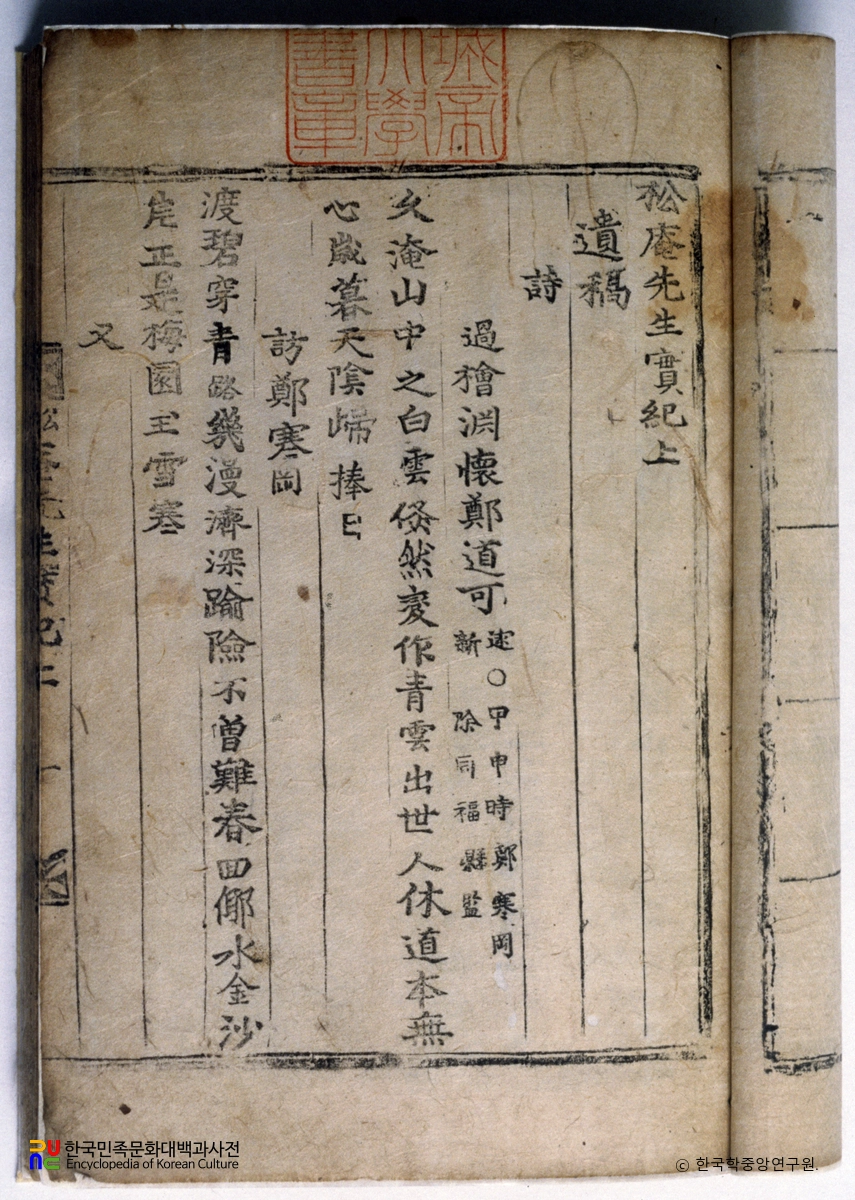 松庵先生實紀上
遺稿
詩
過檜淵懷鄭道可 逑○甲申時鄭寒岡
新除同福縣監
久淹山中之白雲倐然変作青雲出世人休道本無
心歲暮天陰歸捧日
訪鄭寒岡
渡碧穿青路幾漫濟深踰險不曾難春回伽水金沙
岸正是梅園玉雪寒
又
松庵先生實紀上 一
城帝
大學
書章
한국민족문화대백과사전
Encyclopedia of Korean Culture
© 한국학중앙연구원.